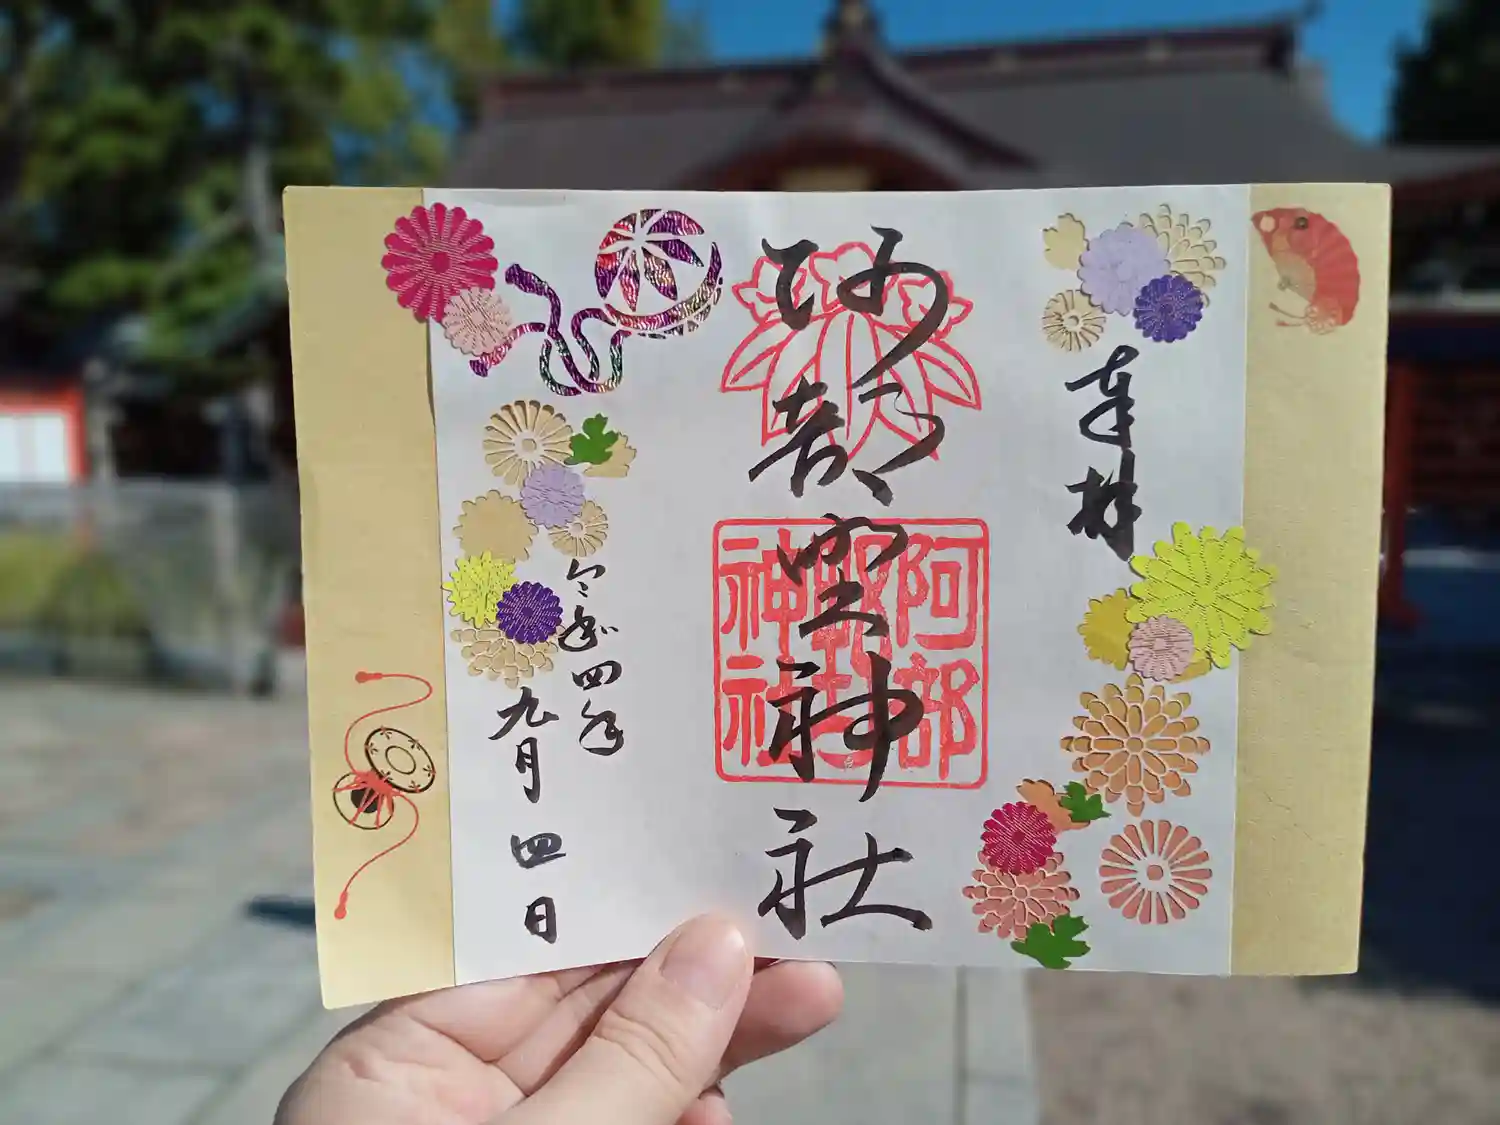 奉拝
阿部野神社
阿部野神社
令和四年
九月四日